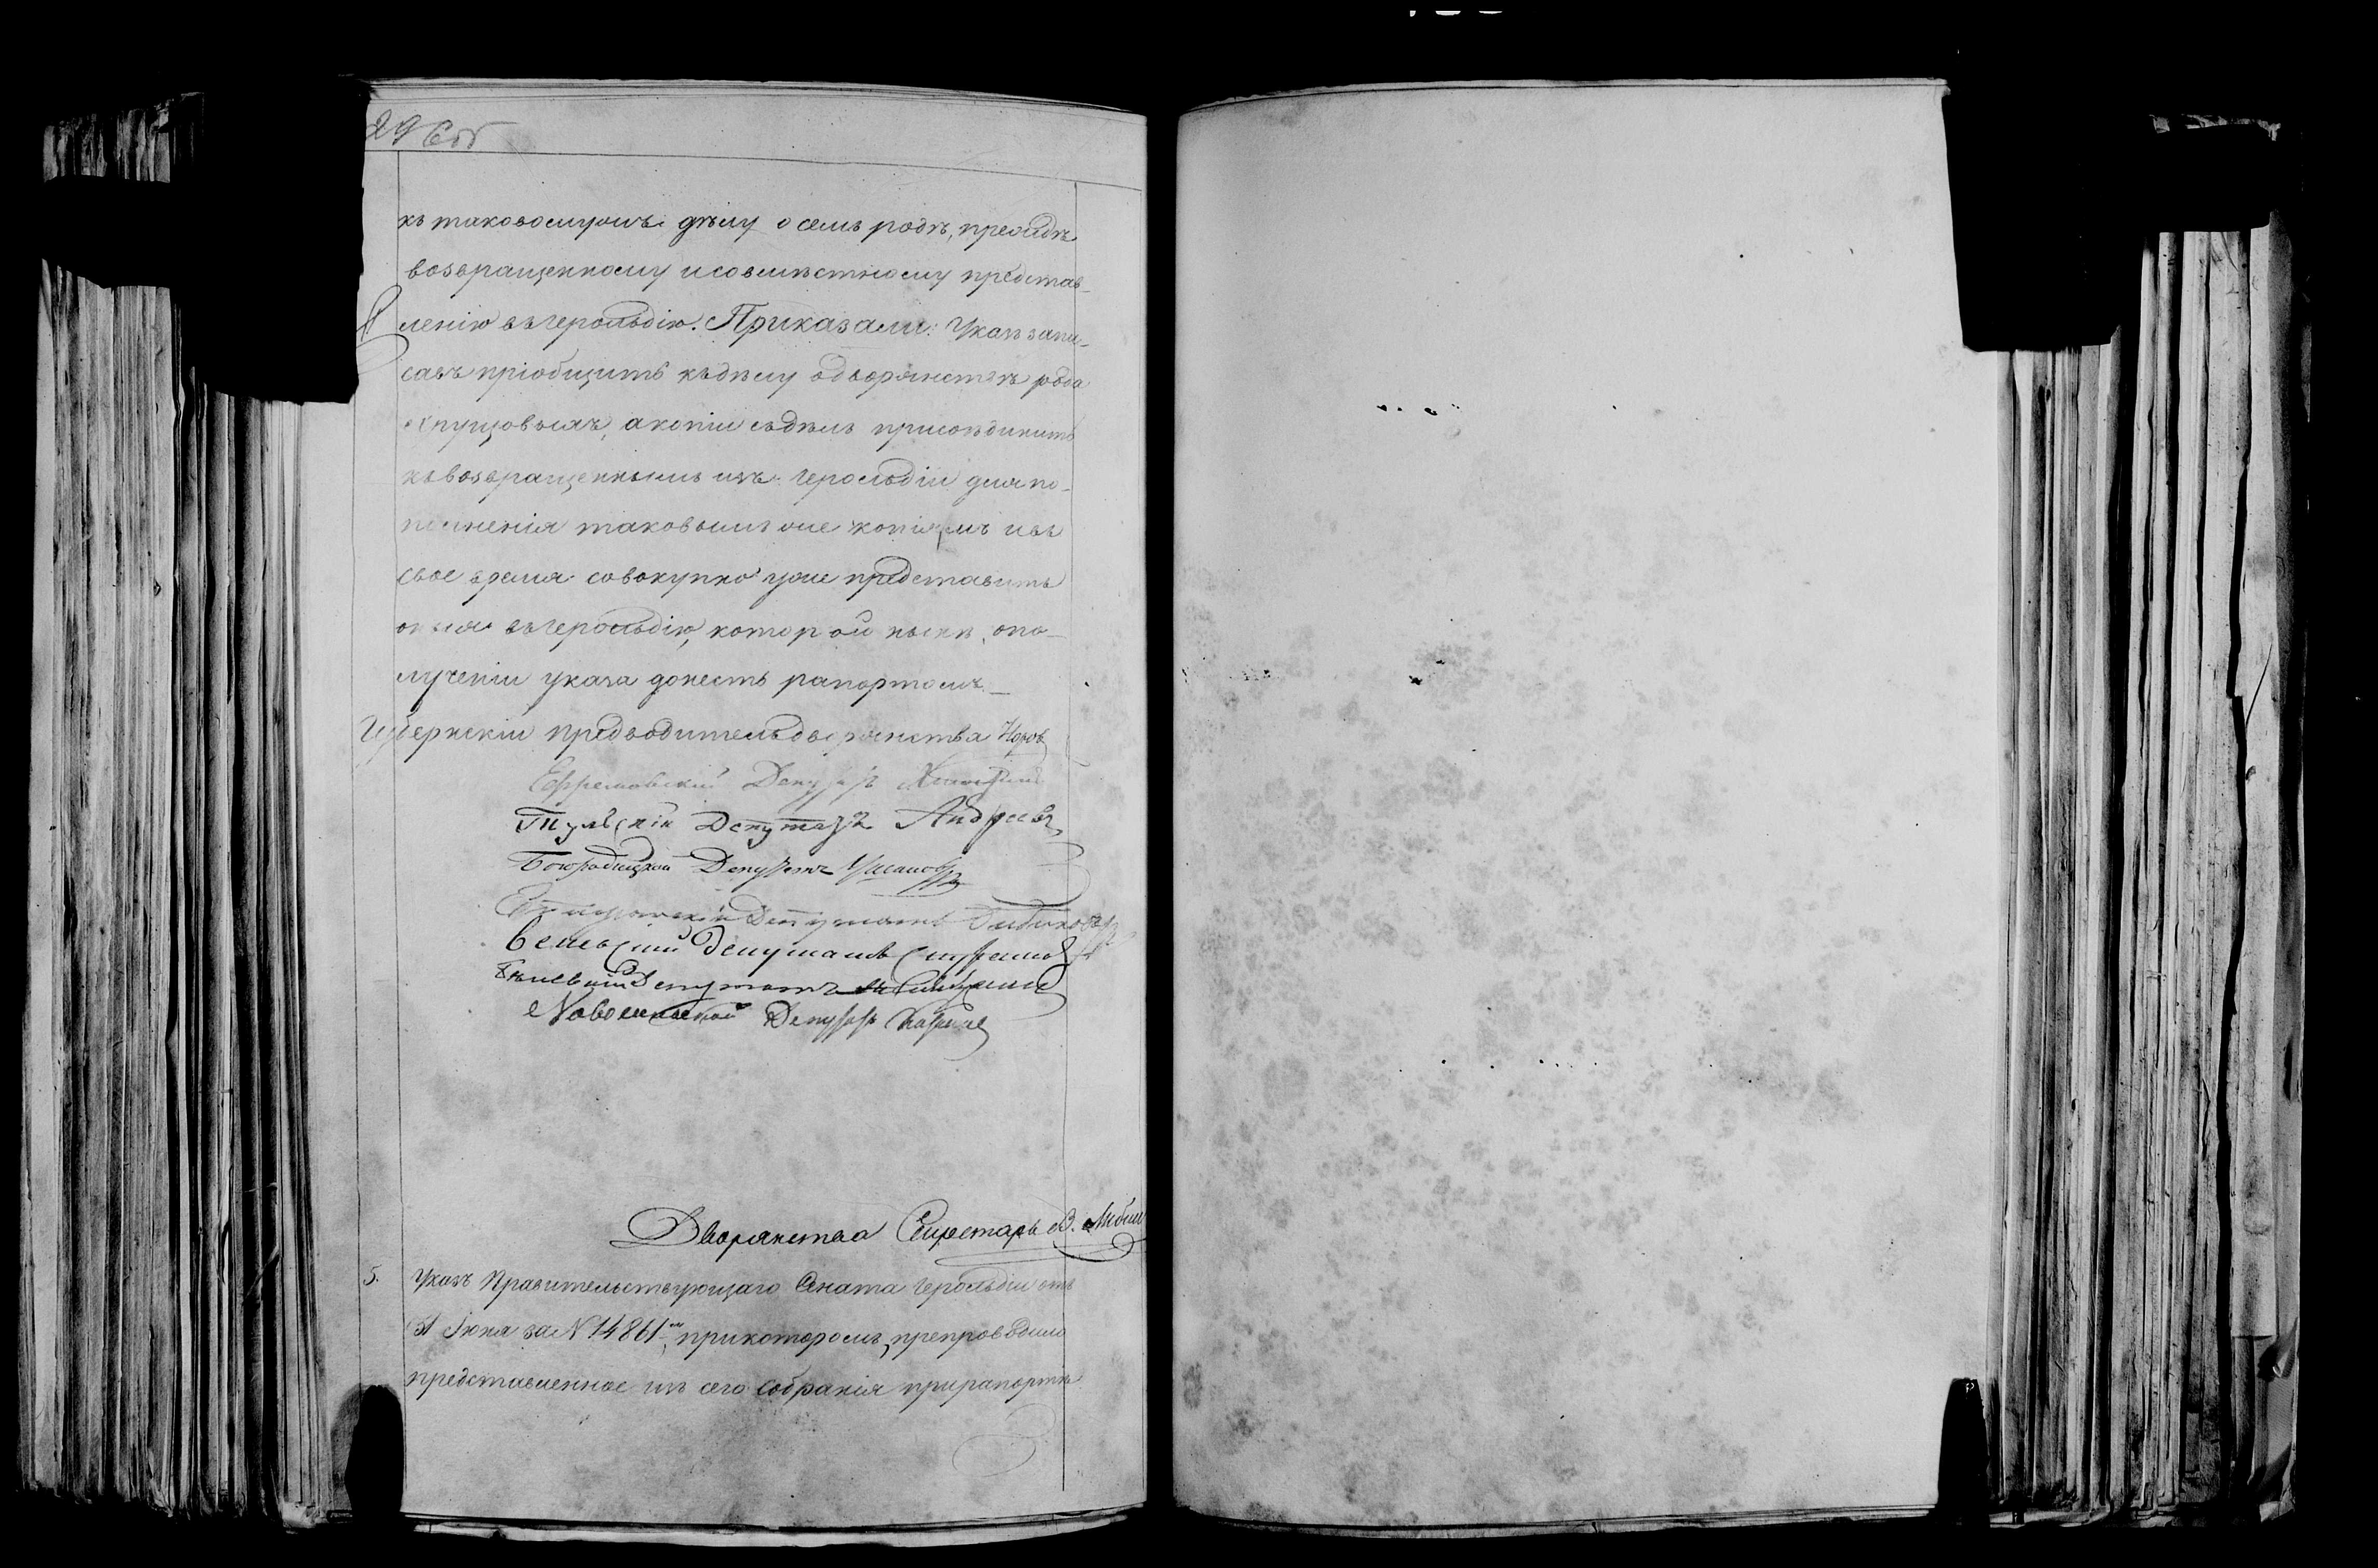 29 об
къ таковомужъ дѣлу о семъ родѣ, прежде
возвращенному и совмѣстному представ-
ленію въ герольдію. Приказали: Указъ запи-
савъ пріобщить къ дѣлу о дворянствѣ рода
а копіи съ дѣлъ присоединить
къ возвращеннымъ изъ герольдіи для по-
полненія таковымъ же копіямъ и въ
свое время совокупно уже представить
оныя въ герольдію, которой нынѣ, о по-
лученіи указа донесть рапортомъ_
Губернскій предводитель дворянства Норовъ
Ефремовскій Депутатъ
Тульскій Депутатъ Андреевъ
Богородицкой Депутатъ
Депутатъ Бибиковъ
Веневскій депутатъ
Депутатъ
Новосильской Депутатъ
Дворянства Секретарь В.
5. Указъ Правительствующаго Сената герольдіи отъ
Іюня за N 14861, при которомъ, препроводила
представленное изъ сего собранія при рапортѣ